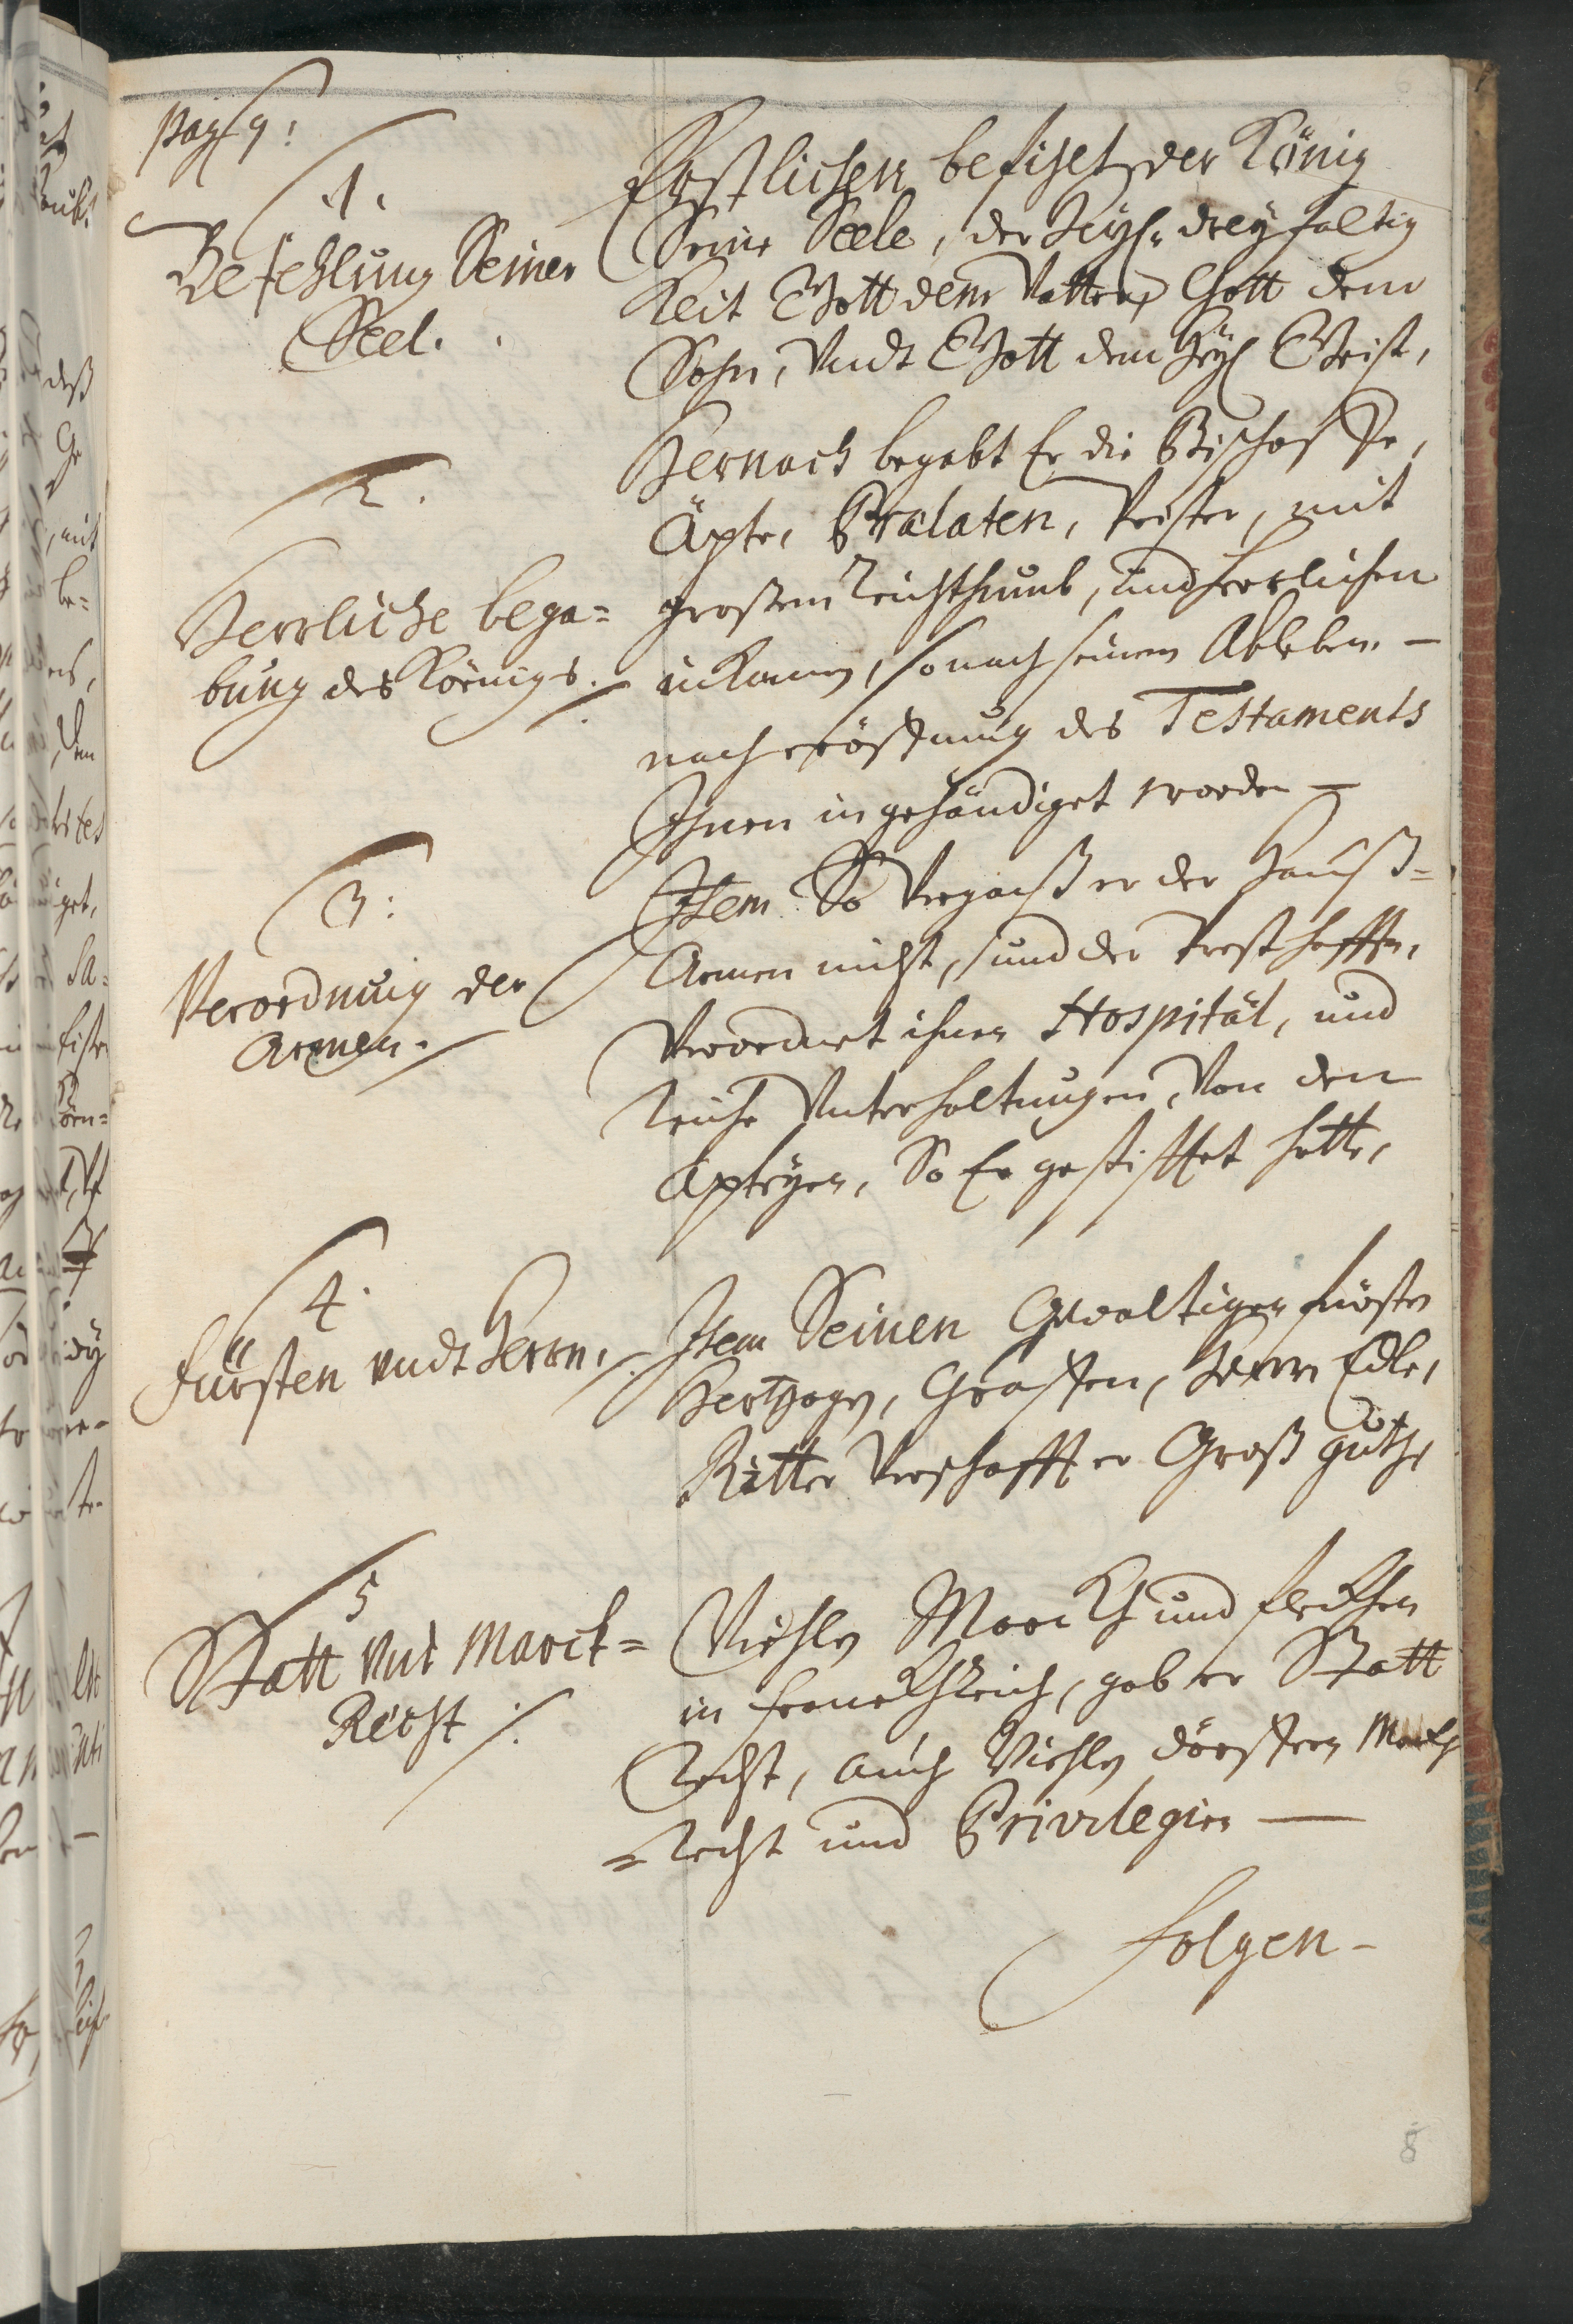 pag 9:
1.
Befehlung Seiner
Seel.
Erstlichen befihlet der König
Seine Seele, der Heyl: dreyfaltig
Keit Gott dem Vatter, Gott dem
Sohn, Undt Gott dem Heyl Geist,
2.
Herrliche bega=
bung des Königs.
Hernach begabt Er die Bischoffe,
Äpte, Prälaten, Prister, mit
großem Reichthumb, und herrlichen
inKomen, so nach seinem Ableben –
nach eröffnung des Testaments
Ihnen ingehändiget worden –
3:
Verordnung der
Armen.
Item So Vergaß er der Hauß=
Armen nicht, und der Presthafften,
Verordnet ihnen Hospitäl, und
Reiche Unterhaltungen, Von den
Apteyen, So Er gestifftet hette,
4.
Fürsten undt Herrn,
Item Seinen Gewaltigen fürsten
Hertzogen, Graffen, Herrn Edle,
Ritter Verschafft er Groß guth,
5
Statt und Marck=
Recht
Viehlen Marckh und fleckhen
in franckhReich, gab er Statt
Recht, auch Viehlen dörffern Marckh
=Recht und Privilegien —
folgen –
8